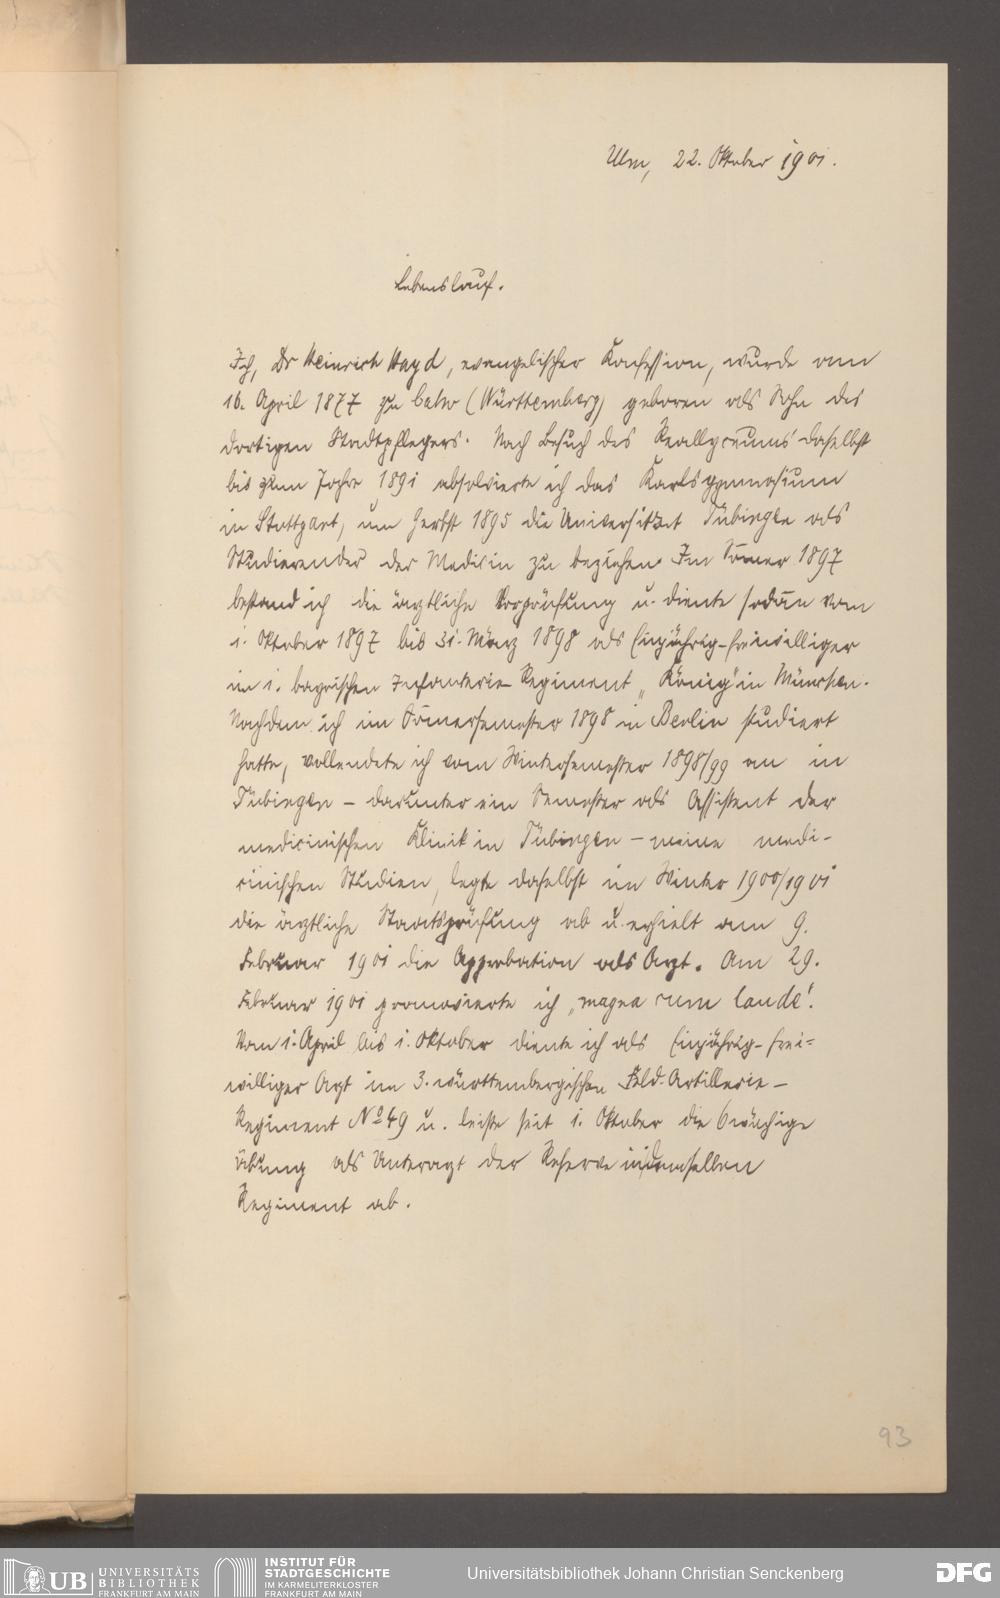 Ulm, 22. Oktober 1901.
Lebenslauf.
Ich, Dr Heinrich Hayd, evangelischer Konfession, wurde am
16. April 1877 zu Calw (Württemberg) geboren als Sohn des
dortigen Stadtpflegers. Nach Besuch des Reallyceums daselbst
bis zum Jahre 1891 absolvierte ich das Karlsgymnasium
in Stuttgart, um Herbst 1895 die Universität Tübingen als
Studierender der Medicin zu beziehen. Im Som̄er 1897
bestand ich die ärztliche Vorprüfung u. diente sodan̄ vom
1. Oktober 1897 bis 31. März 1898 als Einjährig-freiwilliger
im 1. bayrischen Infanterie-Regiment „König" in München.
Nachdem ich im Som̄ersemester 1898 in Berlin studiert
hatte, vollendete ich vom Wintersemester 1898/99 an in
Tübingen – darunter ein Semester als Assistent der
medicinischen Klinik in Tübingen – meine medi-
cinischen Studien, legte daselbst im Winter 1900/1901
die ärztliche Staatsprüfung ab u. erhielt am 9.
Februar 1901 die Approbation als Arzt. Am 29.
Februar 1901 promovierte ich „magna cum laude".
Vom 1. April bis 1. Oktober diente ich als Einjährig-frei-
williger Arzt im 3. württembergischen Feld-Artillerie-
Regiment No 49 u. leiste seit 1. Oktober die 6wöchige
Übung als Unterarzt der Reserve in demselben
Regiment ab.
93
UB UNIVERSITÄTS
BIBLIOTHEK
FRANKFURT AM MAIN
INSTITUT FÜR
STADTGESCHICHTE
IM KARMELITERKLOSTER
FRANKFURT AM MAIN
Universitätsbibliothek Johann Christian Senckenberg
DFG